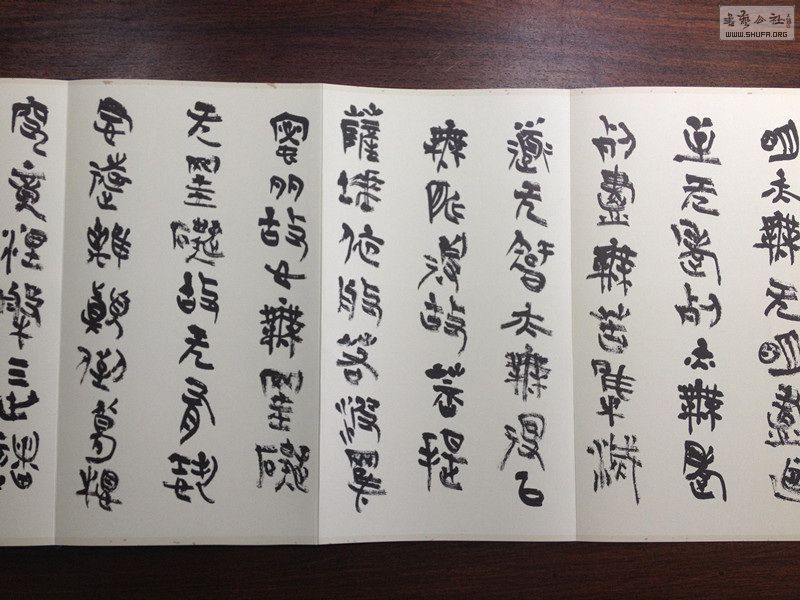 明亦無无明盡迺
至无老死亦無老
死盡無苦集滅
道无智亦無得以
無所得故菩提
薩埵依般若波羅
蜜多故心無罣礙
无罣礙故无有恐
遠離顛倒夢想
究竟涅槃三世諸
WWW.SHUFA.ORG